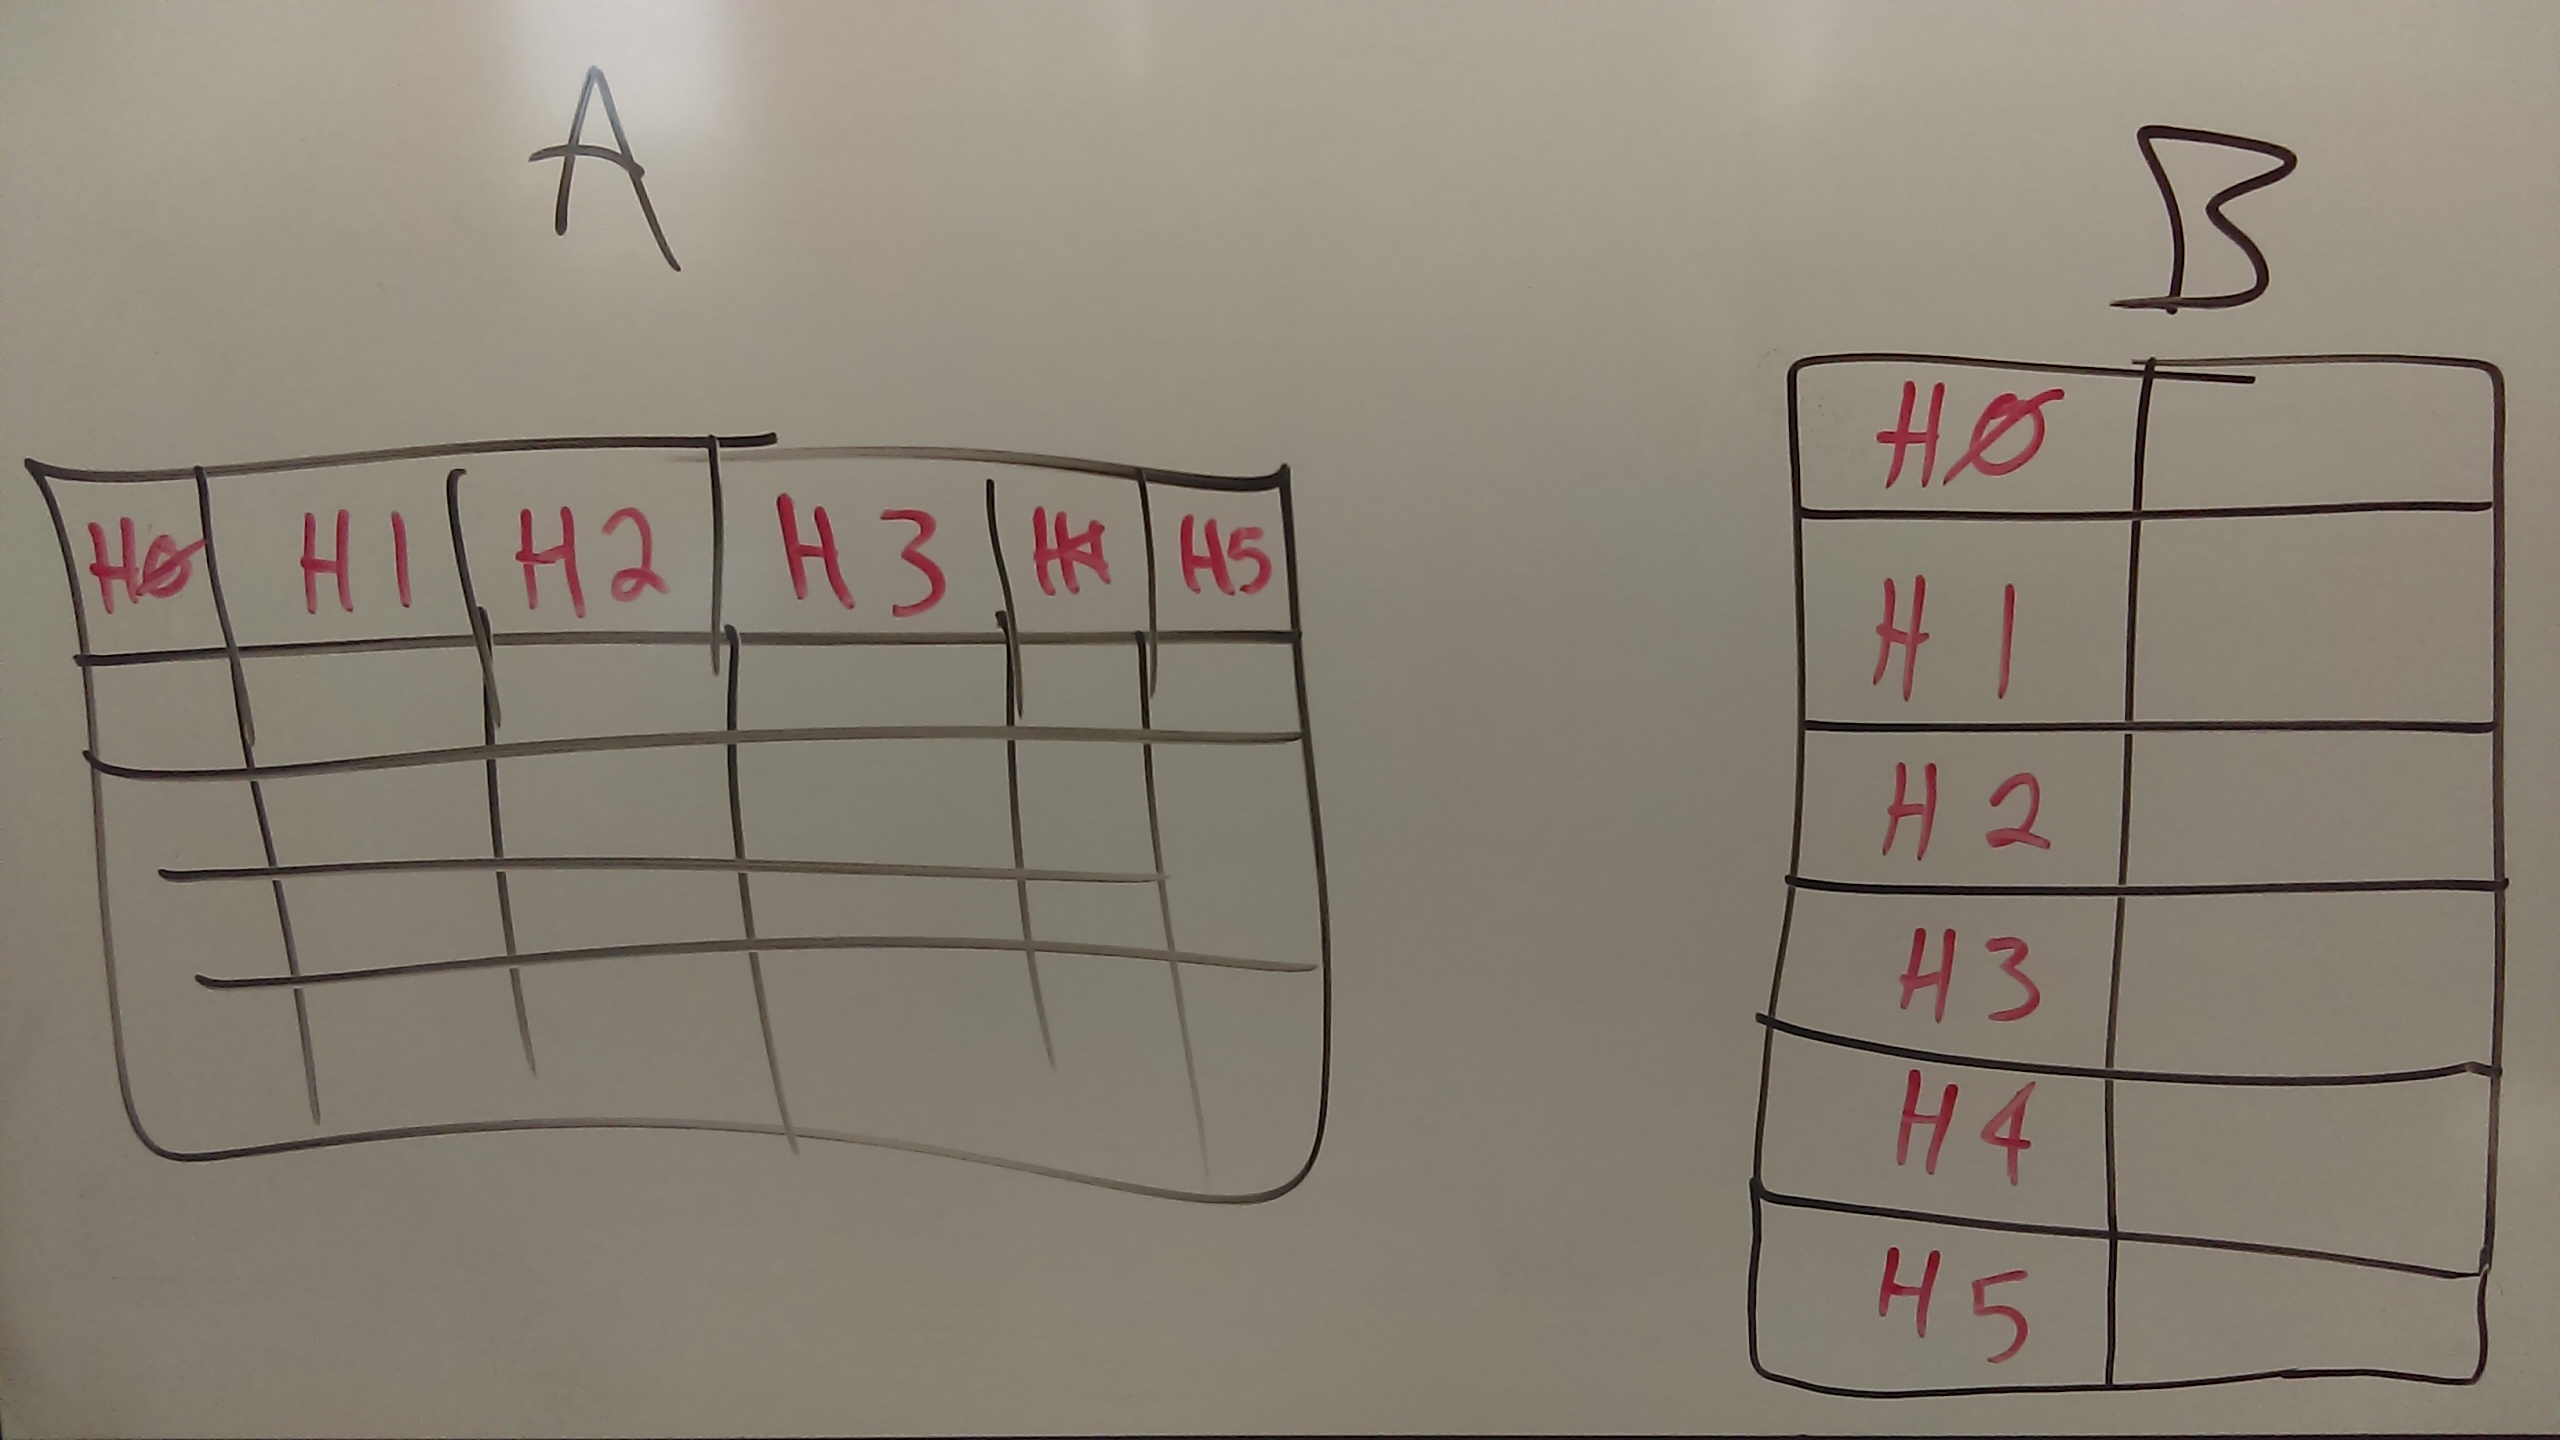 A
B
HØ H1 H2 H3 H4 H5
HØ
H1
H2
H3
H4
H5